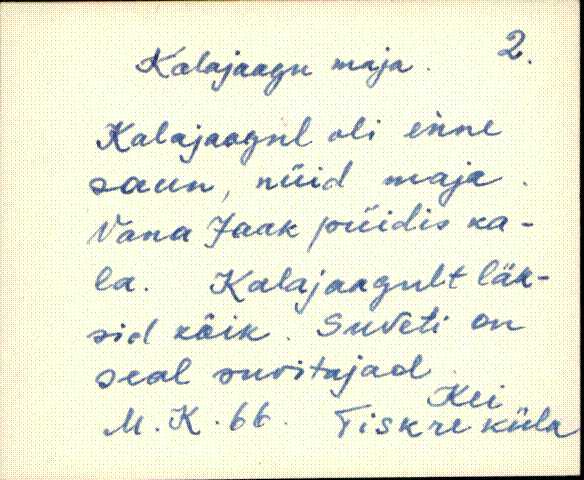 Kalajaagu maja. 2.
Kalajaagul oli enne
saun, nüid maja.
Vana Jaak püidis ka-
la. Kalajaagult läk-
sid kõik. Suveti on
seal suvitajad.
Kei
M. K. 66. Tiskre küla